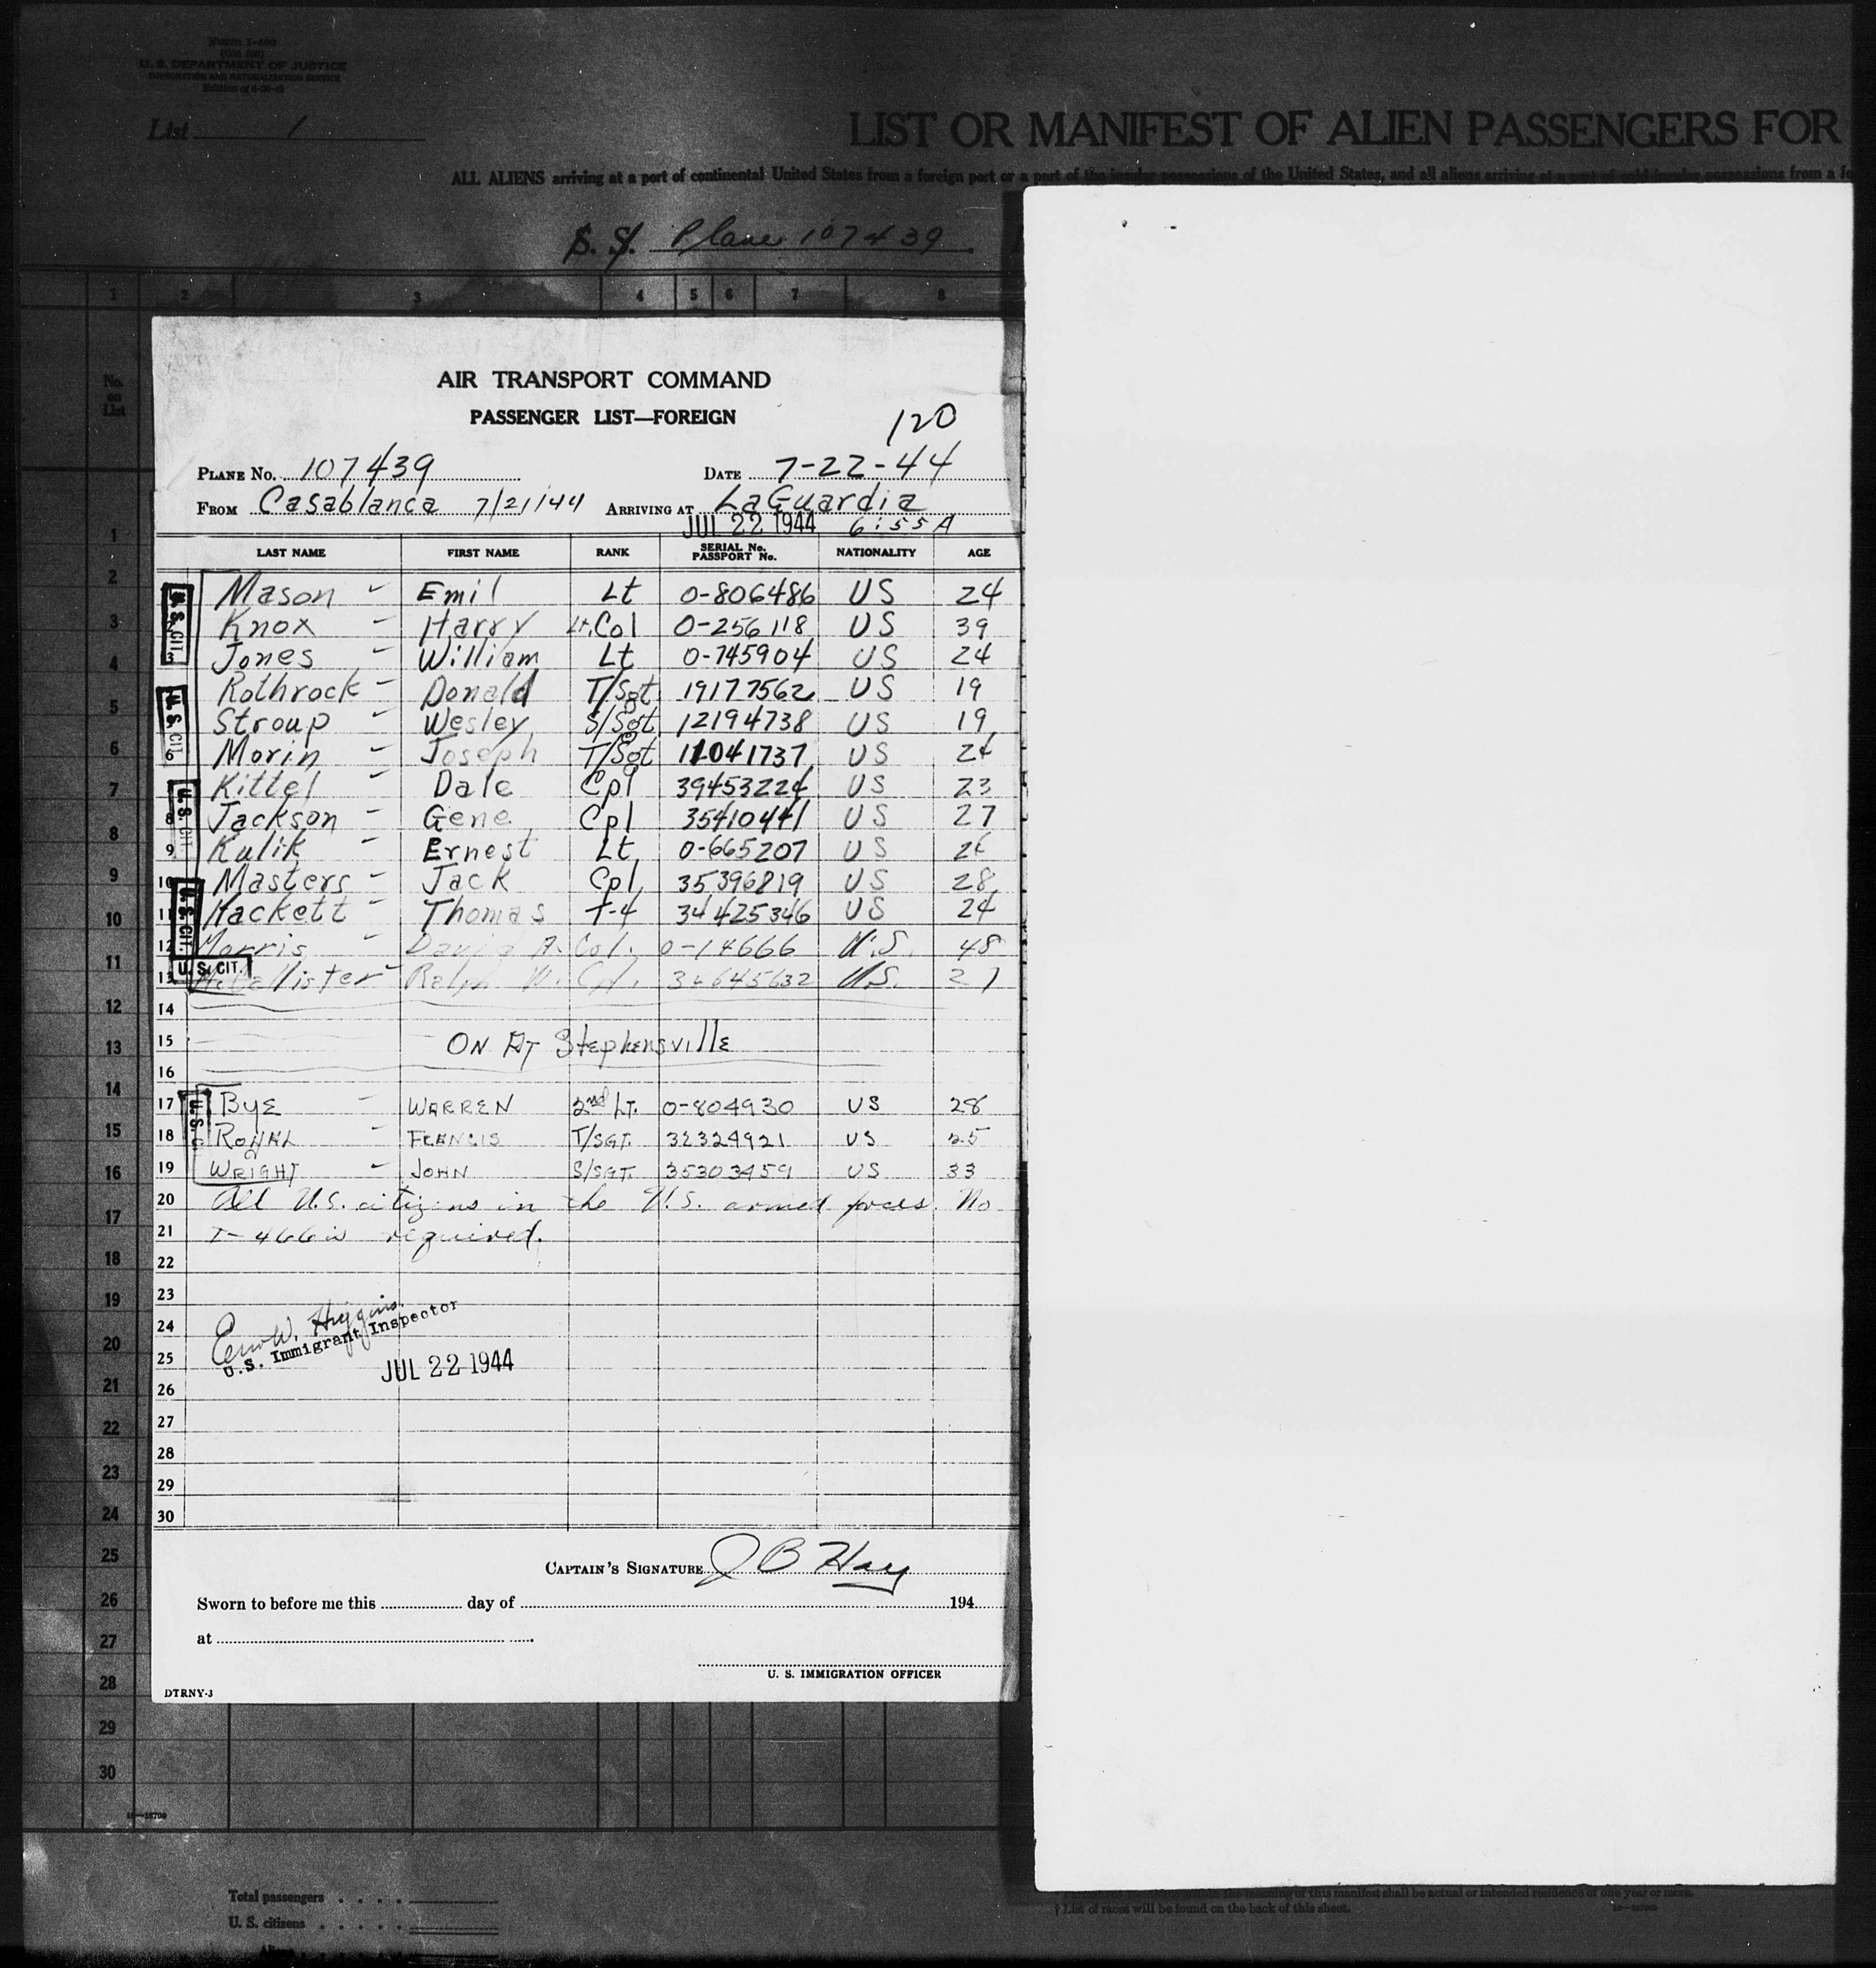 Form I-400
U. S. DEPARTMENT OF JUSTICE
IMMIGRATION AND NATURALIZATION SERVICE
List 1
LIST OR MANIFEST OF ALIEN PASSENGERS FOR
ALL ALIENS arriving at a port of continental United States from a foreign port or a port of the insular possessions of the United States, and all aliens arriving at a port of said insular possessions from a
S. S. Plane 107439
1 2 3 4 5 6 7 8
No. on List
AIR TRANSPORT COMMAND
PASSENGER LIST—FOREIGN
120
PLANE No. 107439 DATE 7-22-44
FROM Casablanca 7/21/44 ARRIVING AT LaGuardia
JUL 22 1944 6:55 A
LAST NAME FIRST NAME RANK SERIAL No. PASSPORT No. NATIONALITY AGE
U.S. CIT.
Mason - Emil Lt 0-806486 US 24
Knox - Harry Lt. Col 0-256118 US 39
3 Jones - William Lt 0-745904 US 24
U.S. CIT
Rothrock - Donald T/Sgt 19177562 US 19
Stroup - Wesley S/Sgt 12194738 US 19
6 Morin - Joseph T/Sgt 11041737 US 24
U.S. CIT
7 Kittel - Dale Cpl 39453224 US 23
8 Jackson - Gene Cpl 35410441 US 27
9 Kulik - Ernest Lt 0-665207 US
U.S. CIT.
10 Masters - Jack Cpl 35396819 US 28
11 Hackett - Thomas T-4 34425346 US 24
12 Morris - David A. Col. 0-14666 U.S. 48
U. S. CIT.
13 McCallister - Ralph W. Cpl. 34645632 U.S. 27
14
15 ON AT Stephensville
16
U.S.
17 BYE - WARREN 2nd LT. 0-804930 US 28
18 - FRANCIS T/SGT. 32324921 US 25
19 WRIGHT - JOHN S/SGT. 35303459 US 33
20 All U.S. citizens in the U.S. armed forces. No
21 I-466 is required.
22
23
24 W. Higgins
25 U.S. Immigrant Inspector
JUL 22 1944
26
27
28
29
30
CAPTAIN'S SIGNATURE J B Hay
Sworn to before me this day of 194
at
U. S. IMMIGRATION OFFICER
DTRNY-3
1
2
3
4
5
6
7
8
9
10
11
12
13
14
15
16
17
18
19
20
21
22
23
24
25
26
27
28
29
30
16—18709
Total passengers
U. S. citizens
Aliens
the meaning of this manifest shall be actual or intended residence of one year or more.
† List of races will be found on the back of this sheet.